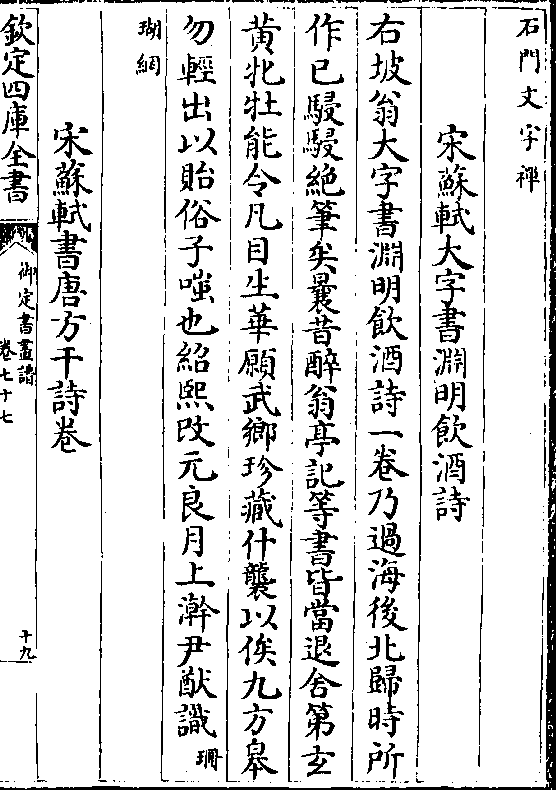 石門文字禪
宋蘇軾大字書淵明飲酒詩
右坡翁大字書淵明飲酒詩一卷乃過海後北歸時所
作已駸駸絶筆矣曩昔醉翁亭記等書皆當退舍第玄
黄牝牡能令凡目生華願武鄉珍藏什襲以俟九方皋
勿輕出以貽俗子嗤也紹熙改元良月上澣尹猷識 珊
瑚網
宋蘇軾書唐方干詩卷
欽定四庫全書
御定書畫譜
卷七十七
十九